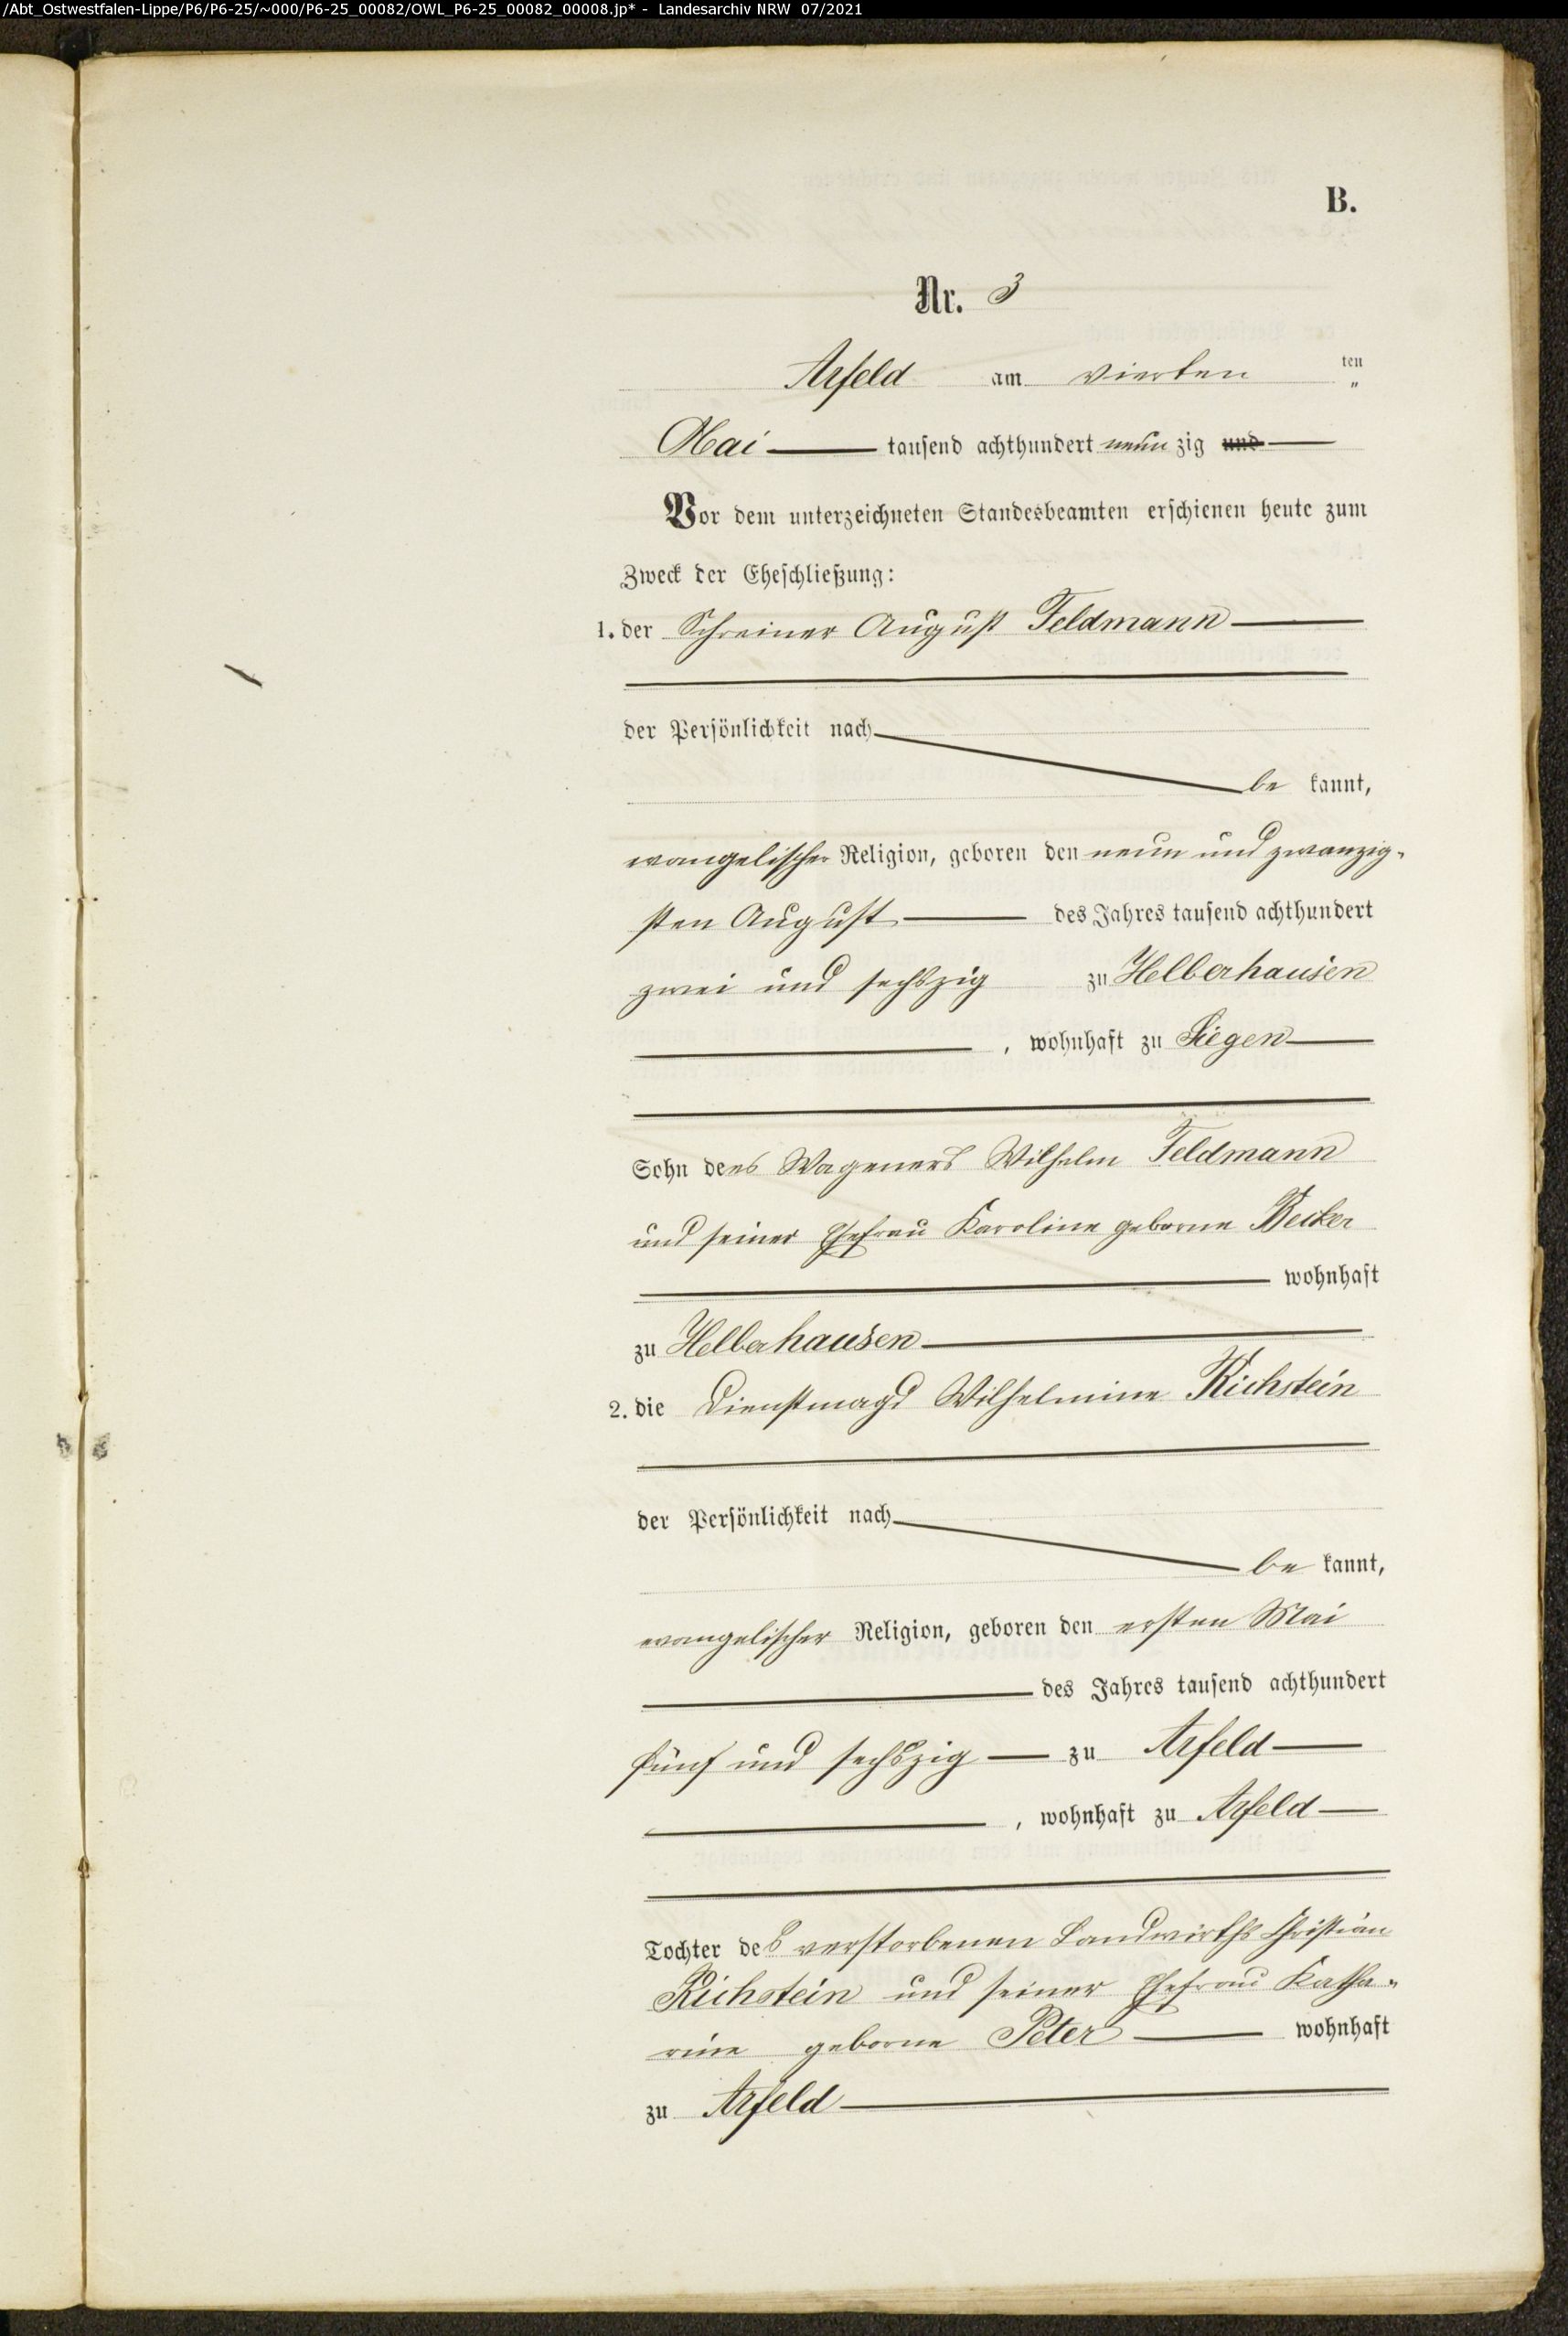 /Abt_Ostwestfalen-Lippe/P6/P6-25/~000/P6-25_00082/OWL_P6-25_00082_00008.jp* - Landesarchiv NRW 07/2021
B.
Nr. 3
Arfeld am vierten ten
"
Mai tausend achthundert neun zig und
Vor dem unterzeichneten Standesbeamten erschienen heute zum
Zweck der Eheschließung:
1. der Schreiner August Feldmann
der Persönlichkeit nach
be kannt,
evangelischer Religion, geboren den neun und zwanzig-
sten August des Jahres tausend achthundert
zwei und sechszig zu Helberhausen
, wohnhaft zu Siegen
Sohn des Wageners Wilhelm Feldmann
und seiner Ehefrau Karoline geborne Becker
wohnhaft
zu Helberhausen
2. die Dienstmagd Wilhelmine Richstein
der Persönlichkeit nach
be kannt,
evangelischer Religion, geboren den ersten Mai
des Jahres tausend achthundert
fünf und sechszig zu Arfeld
, wohnhaft zu Arfeld
Tochter des verstorbenen Landwirths Christian
Richstein und seiner Ehefrau Katha-
rine geborne Peter wohnhaft
zu Arfeld